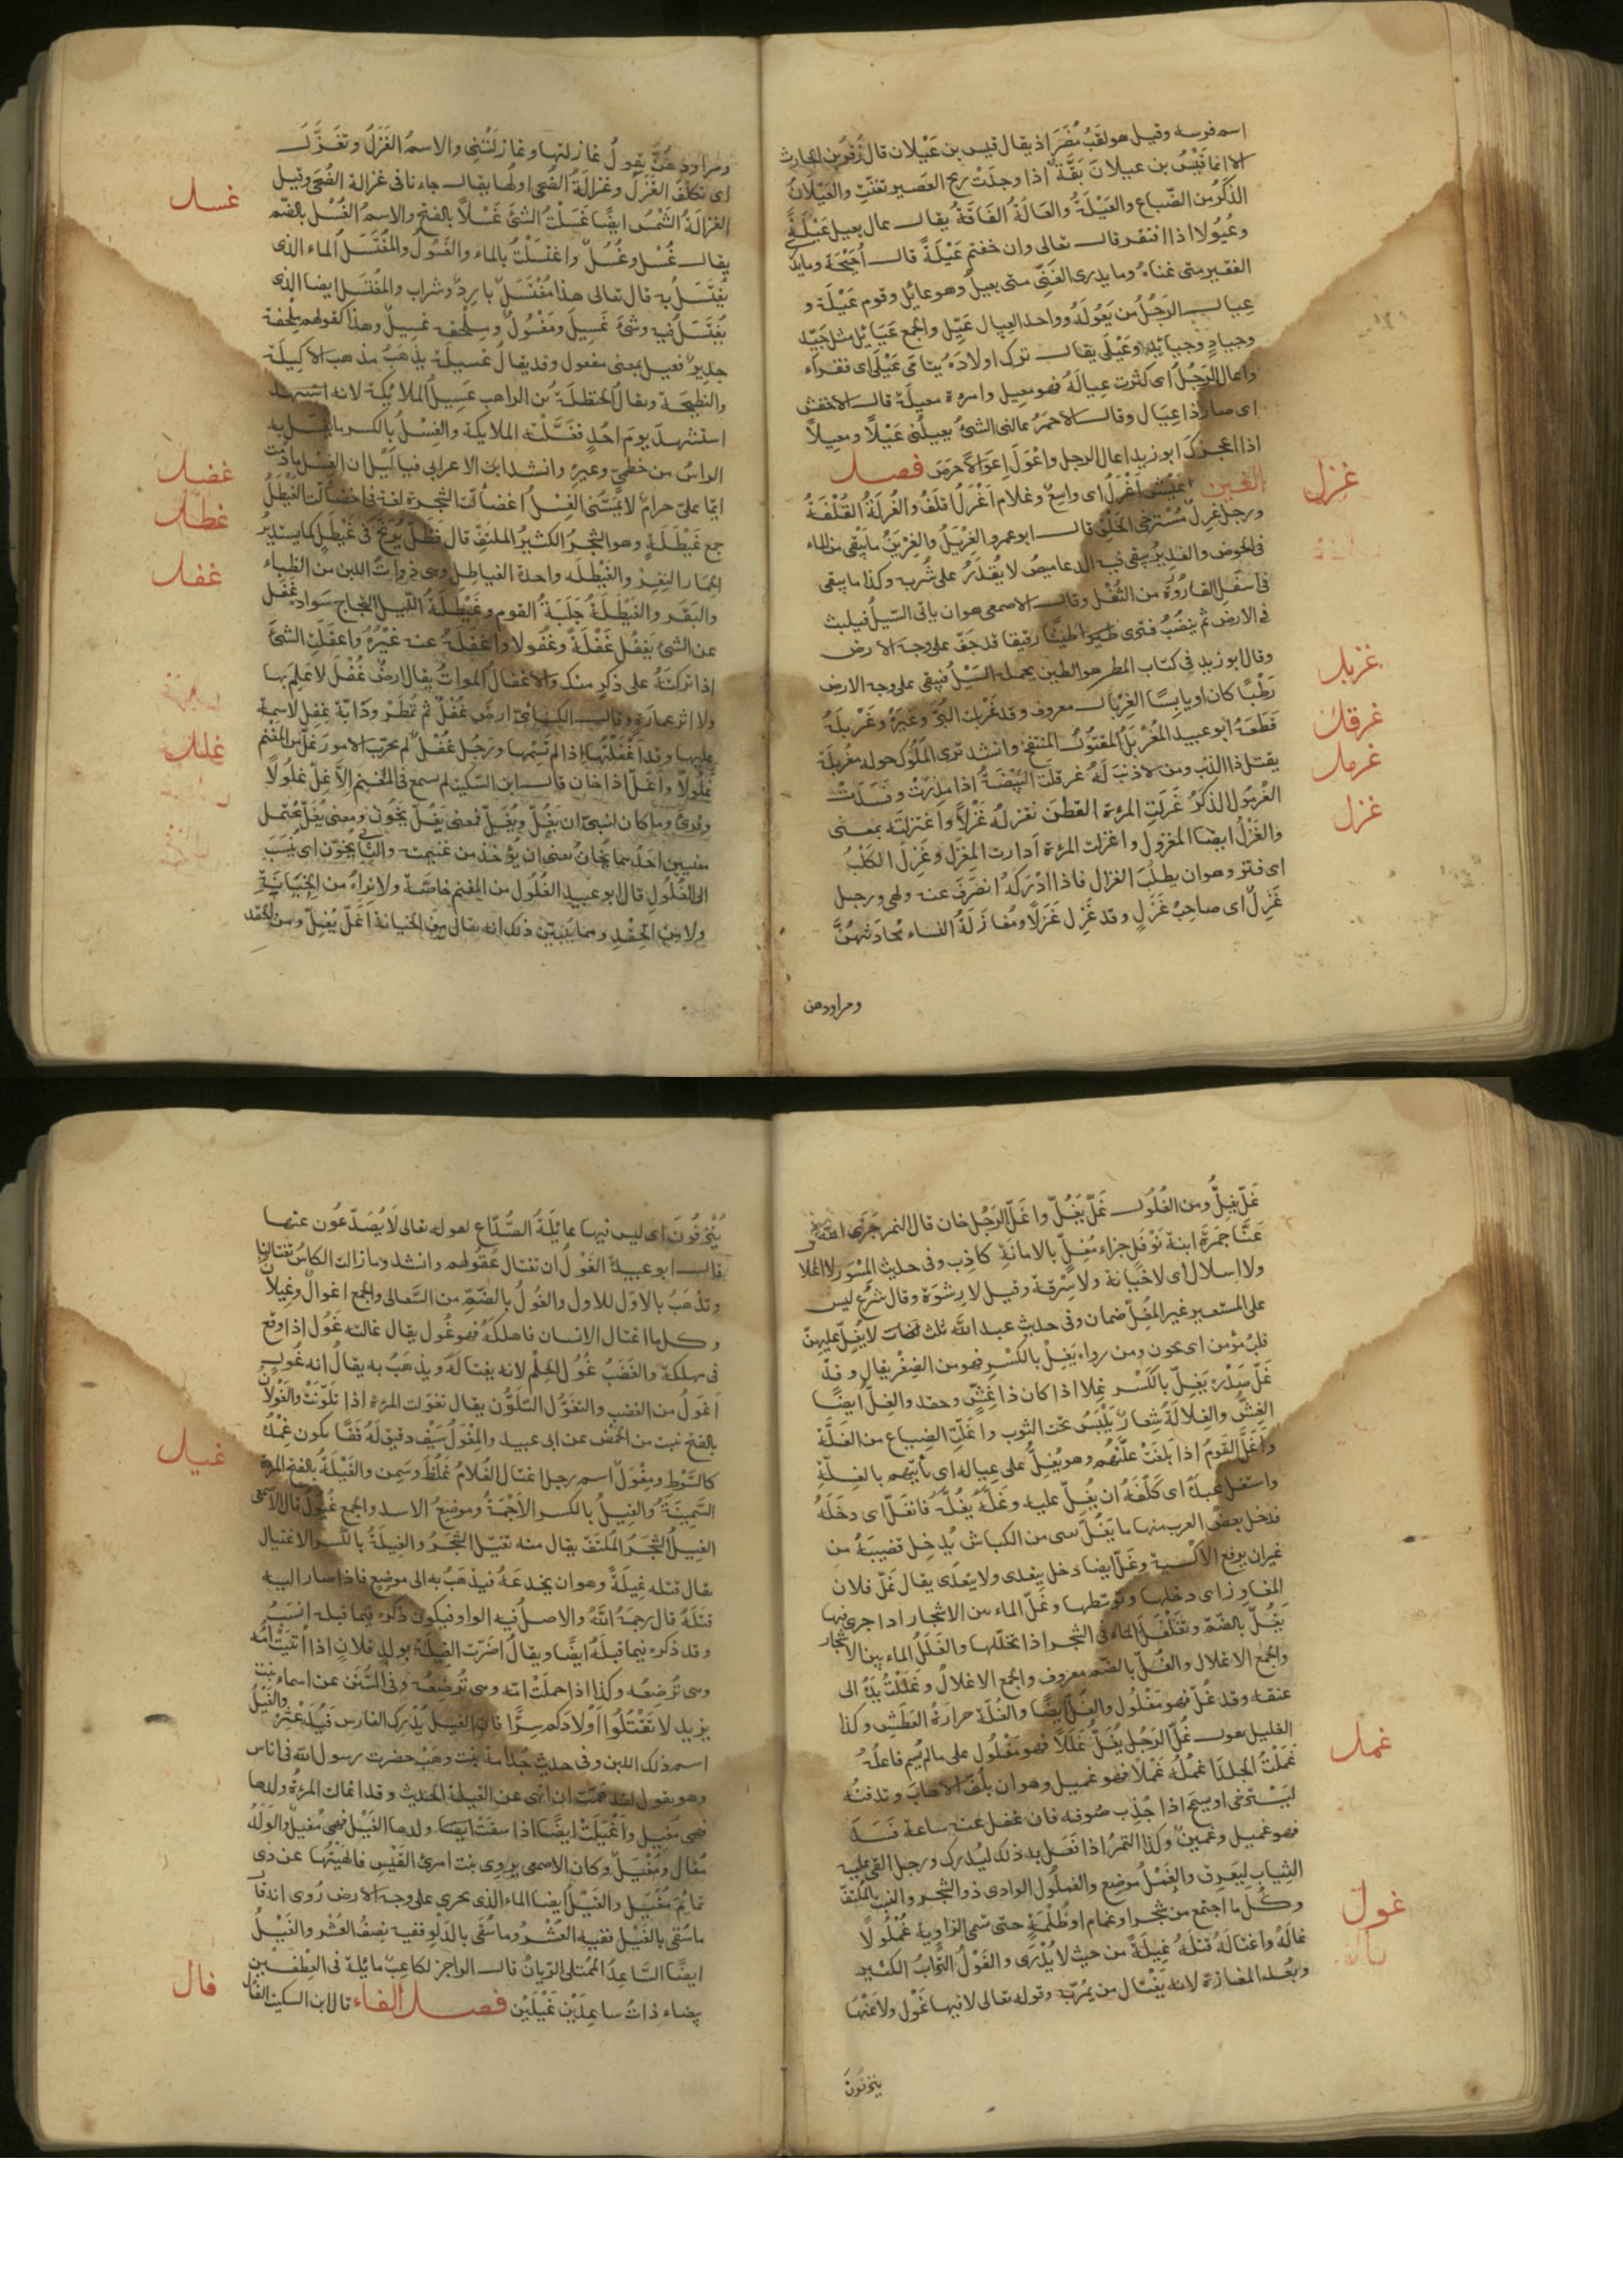 اسم فرسه وقيل هو لقب مُضَر اذ يقال قيس بن عَيْلان قال زُفَر بن الحارث
الا انما قَيْسُ بن عيلان بَقَّة اذا وجدَتْ ريح العَصير تغنّت والعَيْلانُ
الذكَرُ من الضّباع والعَيْلَةُ والعَالَةُ الفَاقَةُ يقال عال يعيل عَيْلَةً
وعُيُولا اذا افتقر قال تعالى وان خفتم عَيْلَةً قال اُحَيْحَة وما يدرى
الفقير متى غناهُ وما يدرى الغَنِّى متى يعيلُ وهو عايل وقوم عَيْلَة و
عيال الرَجُل من يَعُولَهُ وواحد العيال عَيِّل والجمع عَيَايُل مثل جَيّد
وجياد وجيائد وعَيْلَى يقال ترك اولادَهُ يتامَى عَيْلَى اى فقراء
واعال الرَجُلُ اى كثرت عيالُه فهو معيل وامرءة معيلة قال الاخفش
اى صار ذا عيَال وقال الاحمرُ عالنى الشئُ يعيلُنى عَيْلًا ومعيلًا
اذا اعجزك ابو زيد اعال الرجل واعْوَلَ اِعْوَالًا حرَصَ فصل
الغين عَيْش اَغْرَلُ اى واسعٌ وغلام اَغْرَلُ اقلَفُ والغُرلَةُ القُلْفَةُ
غرل
ورجل غَرِلٌ مُسْتَرخى الخَلْق قال ابو عمرو الغِرْيَلُ والغِرْيَنُ ما يَبْقَى من الماء
فى الحوض والغديرُ يبقى فيه الدعاميصُ لا يُقْدَرُ على شُربه وكذا ما يبقى
فى اسفل القارُورة من الثُفْل وقال الاصمعى هو ان ياتى السّيلُ فيلبث
فى الارض ثم ينضُبُ فترى طينًا رقيقا قد جفّ على وجه الارض
وقال ابو زيد فى كتاب المطر هو الطين يحمله السَّيْلُ فيبقى على وجه الارض
غربل
رَطْبًا كان او يابِسًا الغِرْبَال معروف وقد غَرْبلت الشئَ وغيرَهُ وغَرْبلَهُ
قَطعَهُ ابو عبيد المُغَرْبَلُ المقتُولُ المنتفخ وانشد ترى المُلُوكَ حوله مغربلة
غرقل
يقتل ذا الذنب ومن لا ذنبَ لَهُ غرقلَت البَيْضَةُ اذا مذِرَتْ وفسَدَتْ
غرمل
الغُرمُول الذكرُ غزلَت المرءة القطنَ تغزلُه غَزْلًا واغتزلَته بمعنى
غزل
والغَزْلُ ايضا المغزول واغزلت المرءة ادارت المِغْزل وغَزِلَ الكَلْبُ
اى فتر وهو ان يطلُبَ الغزال فاذا ادْرَكهُ انصَرَفَ عنه ولهى ورجل
غَزِلٌ اى صاحِبُ غَزَلٍ وقد غَزِل غَزَلًا ومُغازَلَةُ النساء محادَثَتُهُنَّ
ومراودهن
ومراودهُنَّ يقولُ غازلتها وغازلَتْنِى والاسمُ الغَزَلُ وتغَزَّلَ
اى تكلّفَ الغَزَلَ وغزالةُ الضُحى اولها يقال جاءنا فى غزالة الضُحَى وقيل
الغزالةُ الشَمْسُ ايضًا غَسَلْتُ الشئَ غَسْلًا بالفتح والاسمُ الغُسْلُ بالضّم
غسل
يقال غُسْل وغُسُلٌ واغتسَلْتُ بالماء والغَسُولُ والمُغْتَسَلُ الماء الذى
يُغْتَسَلُ به قال تعالى هذا مُغْتَسَلٌ باردٌ وشراب والمُغْتَسَل ايضا الذى
يُغتَسَلُ فيه وشئ غَسِيل ومَغْسُولٌ ومِلْحفة غسِيلٌ وهذا كقولهم مِلْحفة
جديدٌ فعيل بمعنى مفعول وقد يقالُ غسيلة يذهَبُ مذهب الاكيلة
والنطيحة ويقال لحنظلةَ بن الراهب غَسِيلُ الملايكة لانه استشهد
استشهدَ يومَ اُحُدٍ فغَسَّلَتْهُ الملايكة والغِسْلُ بالكسر ما يُغسَلُ به
الراسُ من خطمىّ وغيره وانشد ابن الاعرابى فيا ليْل ان الغِسْل ما دُمت
غضل
ايّما علىّ حرامٌ لا يَمَسَّنى الغِسْلُ اغضألّت الشجرة لغة فى اخضَالّت الغَيْطَلُ
غطل
جمع غَيْطَلَةٍ وهو الشجرُ الكثيرُ الملتفّ قال فظلّ يُرنّحُ فى غَيْطَلٍ كما يستديرُ
الحمَارُ النعِرْ والغَيْطله واحدة الغياطل وهى ذواتُ اللبن من الظباء
غفل
والبَقَر والغَيْطَلَةُ جَلَبَةُ القوم وغَيْطَلَةُ الليل التجاج سَواده غَفَل
عن الشئ يَغفُل غَفْلَةً وغُفُولا واغفلَهُ عنه غيْرُهُ واغفَلْت الشئَ
اذا تركتَهُ على ذكرٍ منك والاغفالُ المواتُ يقال ارضٌ غُفْلٌ لا عَلَم بها
ولا اثر عمارة وقال الكسائىّ ارضٌ غُفْلٌ لم تُمطَرْ ودَابّة غفل لا سمة
عليها وقد اَغْفَلْتُهَا اذا لم تَسِمْها ورَجُل غُفْلٌ لم يجرّب الامور غلّ من المغنم
غلل
غُلُولًا واغلّ اذا خان قال ابن السّكيت لم نسمع فى المغنم الّا غلّ غلُولًا
وقُرئ وما كان لنبىّ ان يَغُلّ ويُغَلّ فمعنى يَغُلّ يخُونُ ومعنى يُغَلّ يحتمل
معنيين احدُهما يُخَانُ يعنى ان يؤخذ من غنيمته والثانى يُخَوَّنُ اى يُنْسَبُ
الى الغُلُولِ قال ابو عبيد الغُلُولُ من المغنم خاصّة ولا نراهُ من الخِيَانَةِ
ولا من الحِقْدِ ومما يُبَيّن ذلك انه يقالُ من الخيانة اَغَلّ يُغِلّ ومن الحقد
غَلّ يغِلُّ ومن الغُلُول غَلّ يَغُلّ واغلّ الرَجُل خان قال النمر جَزَى اللهُ
عَنّا جمرَةَ ابنة نَوْفَلٍ جزاء مُغِلٍّ بالامانَةِ كاذب وفى حديث المِسْوَر لا اغلال
ولا اِسلال اى لا خيانة ولا سِرقة وقيل لا رِشوَة وقال شُرَيح ليس
على المستعير غير المُغِلّ ضمان وفى حديث عبد الله ثلث لا يُغِلّ عليهنّ
قلبُ مؤمن اى يخون ومن رواه يَغِلّ بالكَسْر فهو من الضِغْن يقال وقد
غَلّ صَدْرُه يَغِلّ بالكَسْر غِلًا اذا كان ذا غِشٍّ وحقد والغِلّ ايضًا
الغِشُّ والغِلالَةُ شِعارٌ يُلْبَسُ تحت الثوب واغلّت الضياع من الغلّة
واَغَلّ القَومُ اذا بَلَغَتْ غلّتهُم وهو يُغِلُّ على عياله اى ياتيهم بالغلّة
واستغلّ عبدَهُ اى كَلّفَهُ ان يُغِلّ عليه وغَلّهُ يَغُلّهُ فانغلّ اى دخَلَهُ
فدخل بعضُ العرب منها ما يَغُلّ يعنى من الكباش يُدخِل قضيبَهُ من
غير ان يرفع الاَلْسية وغَلّ ايضا دخل يتعدى ولا يتعدى يقال غَلّ فلان
المفاوِز اى دخلها وتوسّطها وغَلّ الماء بين الاشجار اذا جرى فيها
يَغُلّ بالضّم وتغَلْغَلَ الماء فى الشجر اذا تخلّلها والغَلَلُ الماء بين الاشجار
والجمع الاغلال والغُلّ بالضّم معروف والجمع الاغلالُ وغَلَلْتُ يدَهُ الى
عنقه وقد غُلّ فهو مَغْلُول والغُلّ ايضًا والغُلّة حرارة العَطَش وكذا
الغليل يقول غُلّ الرَجُل يُغَلُّ غَلَلًا فهو مَغْلُول على مالم يُسمّ فاعلُهُ
غَمَلْتُ الجلدَ اغمُلُهُ غَمْلًا فهو غميل وهو ان يلُفّ الاهابَ وتدفنُه
غمل
ليَسْترخى اذا جُذِب صُوفه فان غفل عنه ساعة فسَدَ
فهو غميل وغمين وكذا التمرُ اذا نَعَل به ذلك ليُدرِك ورجل القى عليه
الثيابَ ليَعرِق والغَمْلُ موضع والغملُول الوادى ذو الشجر والنبت المُلتفّ
وكُلّ ما اجتمع من شجر او غمام او ظُلْمَةٍ حتى تسمى الزاوية غُمْلُولًا
غالَهُ واغتالَهُ قتلَهُ غِيلَةً من حيث لا يَدْرى والغَوْلُ التُّرابُ الكثير
غول
وبُعْد المفازة لانه يَغْتال من يمُرّ به وقوله تعالى لا فيها غَوْل ولا عَنْهَا
ينزفون
يُنْزَفُونَ اى ليس فيها غايلةُ الصُّدَاع لقوله تعالى لَا يُصَدّعُون عنها
قال ابو عبيدة الغَوْلُ ان تغتال عقُولهم وانشد وما زالت الكاسُ تغتالنا
وتذهَبُ بالاوّل للاول والغُولُ بالضّمِّ من السَّعالى والجمع اغوال وغيلان
وكل ما اغتال الانسان فاهلكَهُ فهو غُول يقال غالته غُول اذا وقع
فى مهلكة والغَضَبُ غُولُ الحلْم لانه يغتالُهُ ويذهَبُ به يقالُ اية غُول
اَغوَلُ من الغضب والتغَوّلُ التلَوّن يقال تغوّلت المرءة اذا تلَوّنَتْ والغَوْلانُ
بالفتح نبت من الحَمْض عن ابى عبيد والمِغْوَلُ سَيْف دقيق لَهُ قَفًا يكون غِمْدُهُ
كالسَّوْط ومِغْوَل اسم رجل اغتال الغُلامُ غَلُظَ وسَمِن والغَيْلَةُ بالفتح المرءة
غيل
السَّمِينَةُ والغِيلُ بالكسر الاَجَمَةُ وموضِعُ الاسد والجمع غُيُولٌ قال الاصمعى
الغيلُ الشجَرُ المُلتَفّ يقال منه تغيّل الشجَرُ والغِيلَةُ بالكسر الاغتيال
يقال قتله غِيلَةً وهو ان يخدعَهُ فيذهَبُ به الى موضِعٍ فاذا صار اليه
قتلَهُ قال رحمهُ اللهُ والاصلُ فيه الواو فيكون ذكره فيما قبله انسَبُ
وقد ذكره فيما قبلَهُ ايضًا ويقالُ اضرّت الغِيلَةُ بولدِ فلانٍ اذا اُتيَتْ اُمّه
وهى تُرْضِعُه وكذا اذا حملَتْ امّه وهى تُرضِعُه وفى السُّنَن عن اسماء بنت
يزيد لا تقتُلُوا اَولادَكم سِرًّا فان الغيلَ يُدرِك الفارس فيُدَعْثِرُهُ والغَيْلُ
اسم ذلك اللبن وفى حديث جُدَامة بنت وهب حضرت رسول الله فى اناس
وهو يقول لقد هممْتُ ان انهى عن الغيلة الحديث وقد اغالت المرءةُ ولدها
فهى مغيل واَغْيَلَتْ ايضًا اذا سقتْ ولدها الغَيْل فهى مُغْيِل والوَلَدُ
مُغال ومُغْيَل وكان الاصمعى يروى بيت امرئ القَيْس فالهَيْتُها عن ذى
تمايُمَ مُغْيَل والغَيْلُ ايضا الماء الذى يجرى على وجه الارض رُوى انه قال
ما سُقى بالغَيْل ففيه العُشْر وما سُقَى بالدَلْوِ ففيه نِصفُ العُشْر والغَيْلُ
ايضًا السَّاعِدُ الممتلى الرّيانُ قال الراجز لكاعِبٌ مائلة فى العِطْفَيْنِ
بيضاء ذاتُ ساعِدَيْن غَيْلَيْن فصل الفاء قال ابن السكيت الفال
فال